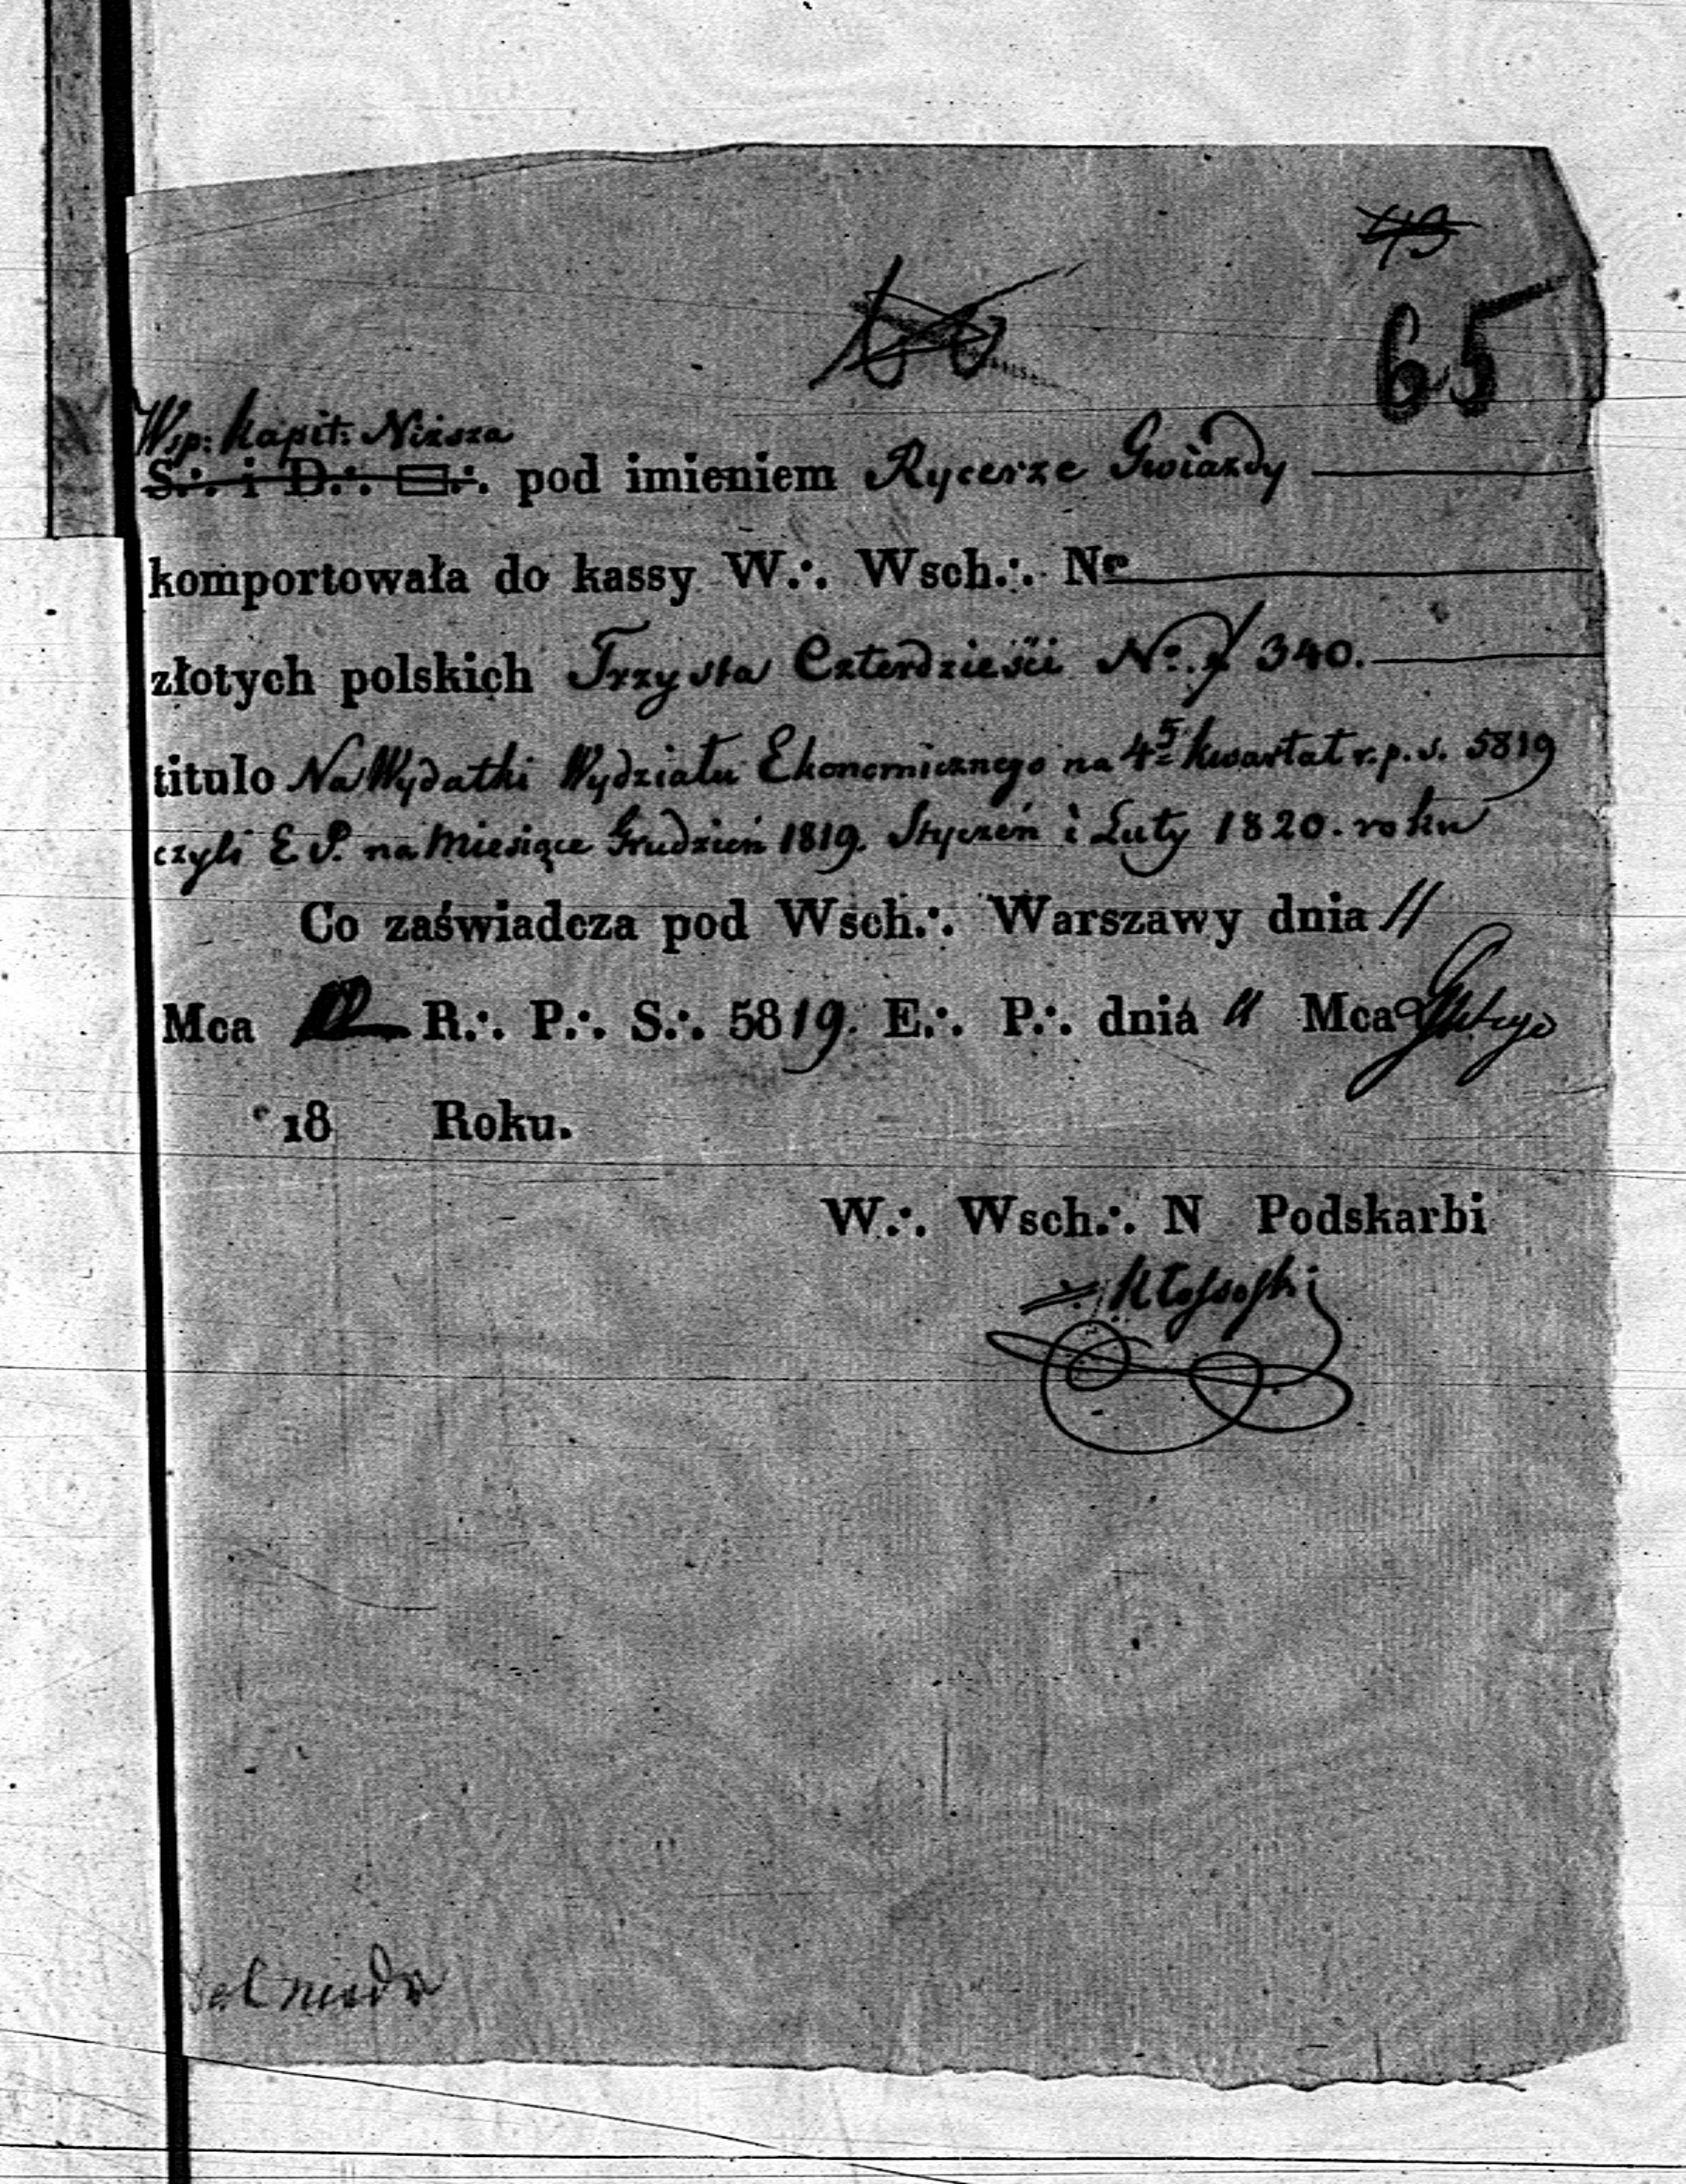 43
65
Wsp: Kapit: Niższa
S.·. i D.·. ▭.·. pod imieniem Rycerze Gwiazdy
komportowała do kassy W.·. Wsch.·. Nº
złotych polskich Trzysta Czterdzieści No. f 340.
titulo Na Wydatki Wydziału Ekonomicznego na 4ty kwartał r. p. s. 5819
czyli E P. na Miesiące Grudzień 1819. Styczeń i Luty 1820. roku
Co zaświadcza pod Wsch.·. Warszawy dnia 11
Mca 12 R.·. P.·. S.·. 5819. E.·. P.·. dnia 11 Mca Lutego
18 Roku.
W.·. Wsch.·. N Podskarbi